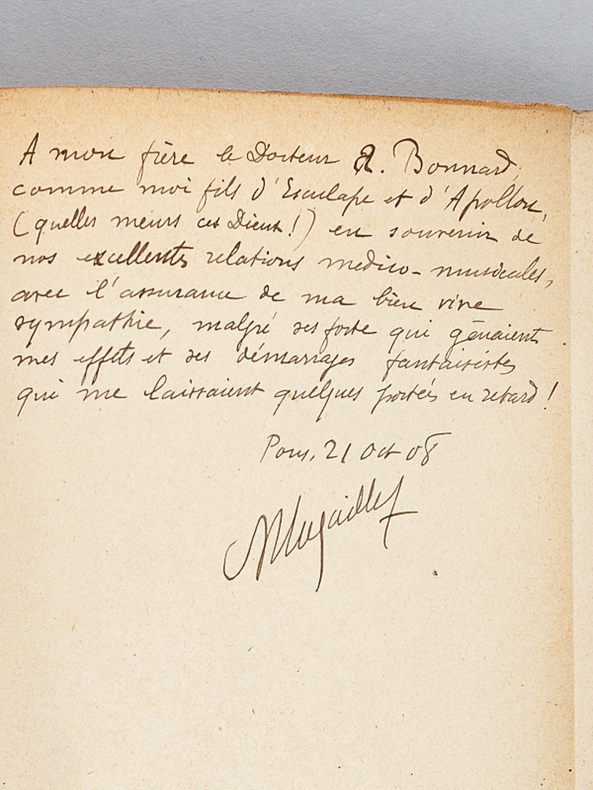 A mon frère le Docteur A. Bonnard,
comme moi fils d'Esculape et d'Apollon,
(quelles mœurs ces Dieux!) en souvenir de
nos excellentes relations medico-musicales,
avec l'assurance de ma bien vive
sympathie, malgré ses forte qui gênaient
mes effets et ses démarrages fantaisistes
qui me laissaient quelques portées en retard!
Pons, 21 Oct 08